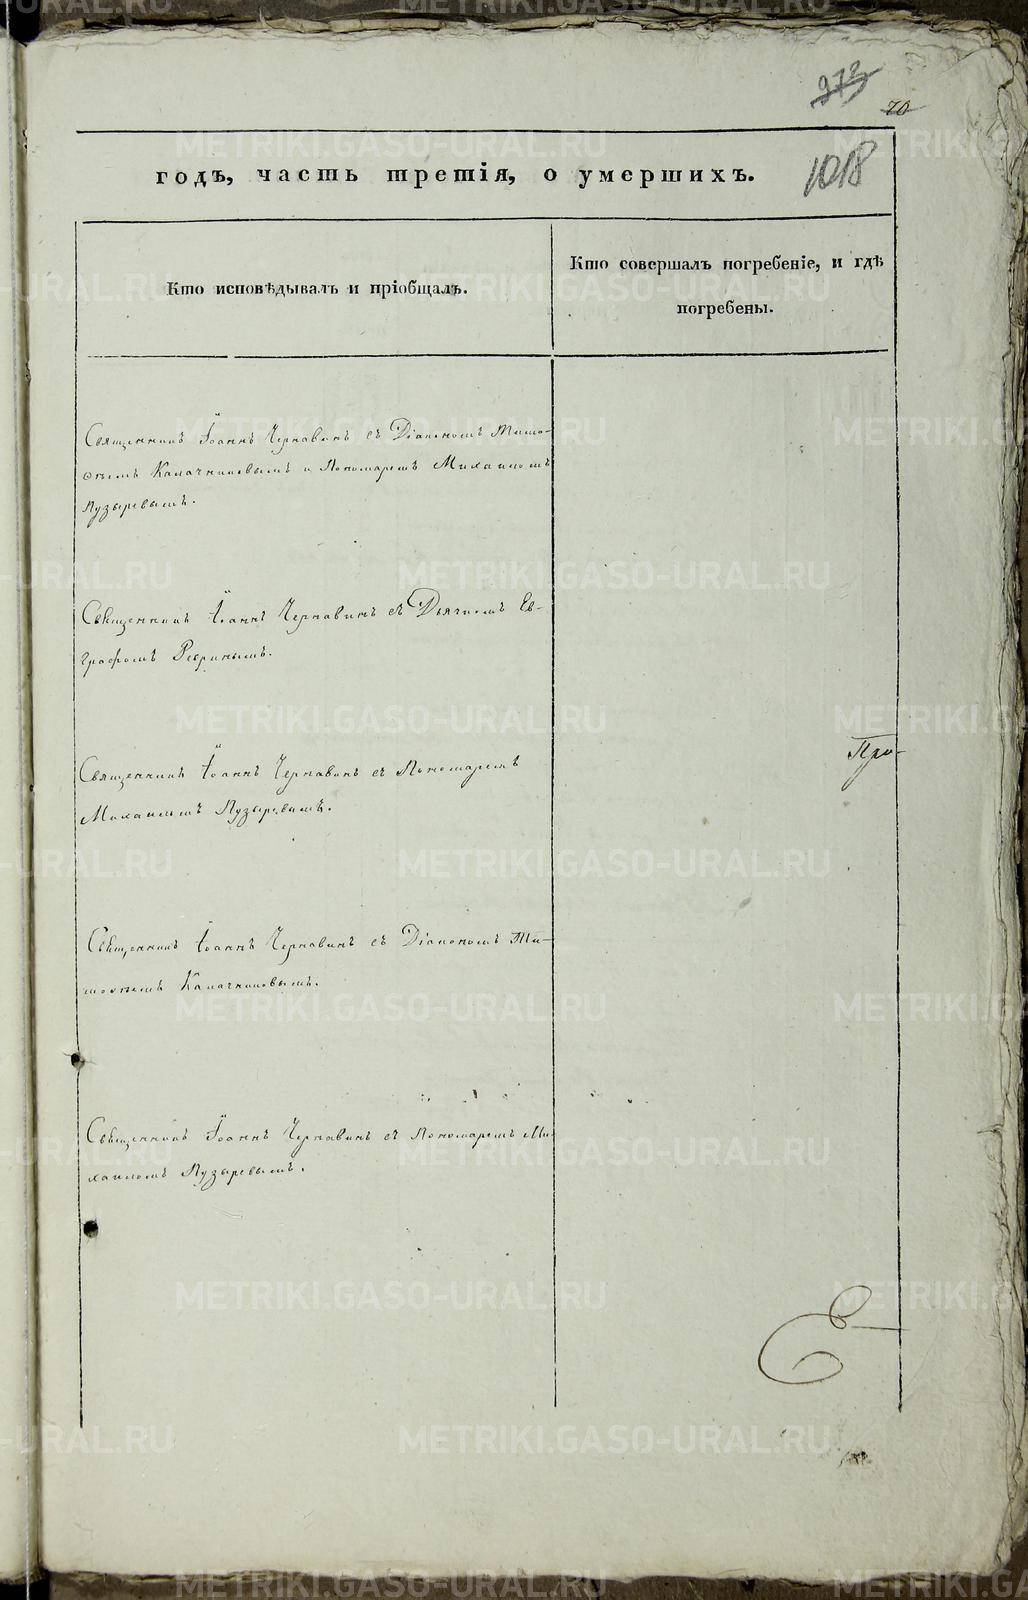 273
70
1018
годъ, часть третія, о умершихъ.
Кто исповѣдывалъ и пріобщалъ.
Кто совершалъ погребеніе, и гдѣ
погребены.
Священникъ Іоаннъ Чернавинъ съ Діакономъ Тимо-
ѳеемъ Калачниковымъ и Пономаремъ Михаиломъ
Пузыревымъ.
Священникъ Іоаннъ Чернавинъ съ Дьячкомъ Ев-
графомъ
Священникъ Іоаннъ Чернавинъ съ Пономаремъ
Михаиломъ Пузыревымъ.
Про-
Священникъ Іоаннъ Чернавинъ съ Діакономъ Ти-
моѳеемъ Калачниковымъ.
Священникъ Іоаннъ Чернавинъ съ Пономаремъ Ми-
хаиломъ Пузыревымъ.
METRIKI.GASO-URAL.RU